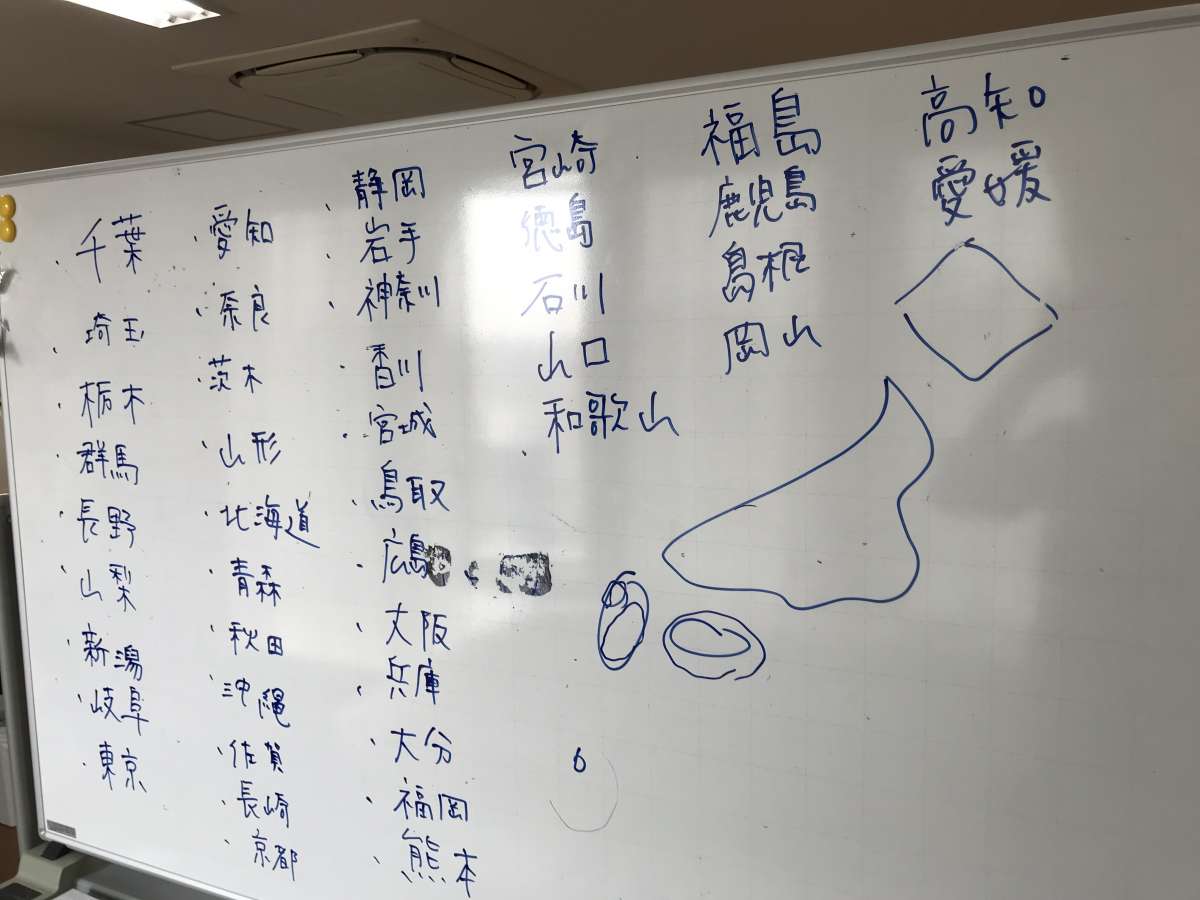 ・千葉
・埼玉
・栃木
・群馬
・長野
・山梨
・新潟
・岐阜
・東京
・愛知
・奈良
・茨木
・山形
・北海道
・青森
・秋田
・沖縄
・佐賀
・長崎
・京都
・静岡
・岩手
・神奈川
・香川
・宮城
・鳥取
・広島
・大阪
・兵庫
・大分
・福岡
・熊本
宮崎
徳島
石川
山口
・和歌山
福島
鹿児島
島根
岡山
高知
愛媛